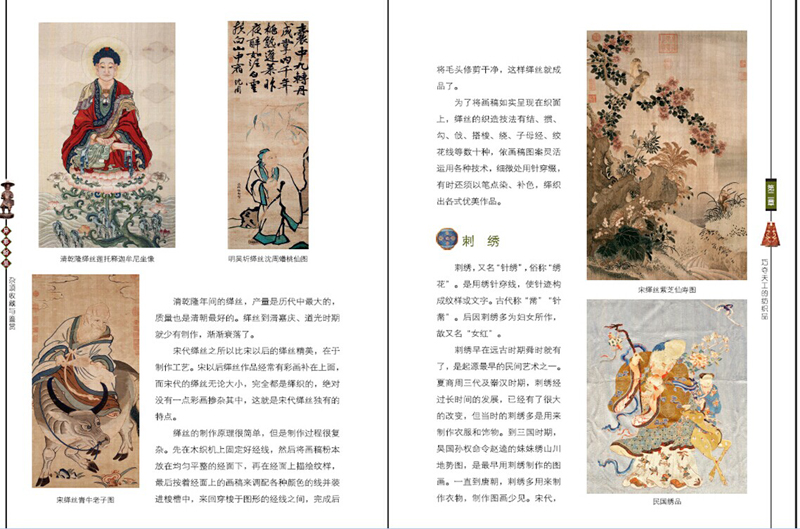 囊中九转丹
成掌四千年
桃熟蓬莱昨
夜醉如泥白云
扶向山中宿
沈周
清乾隆缂丝莲托释迦牟尼坐像
明吴圻缂丝沈周蟠桃仙图
宋缂丝青牛老子图
杂项收藏与鉴赏
清乾隆年间的缂丝，产量是历代中最大的，
质量也是清朝最好的。缂丝到清嘉庆、道光时期
就少有制作，渐渐衰落了。
宋代缂丝之所以比宋以后的缂丝精美，在于
制作工艺。宋以后缂丝作品经常有彩画补在上面，
而宋代的缂丝无论大小，完全都是缂织的，绝对
没有一点彩画掺杂其中，这就是宋代缂丝独有的
特点。
缂丝的制作原理很简单，但是制作过程很复
杂。先在木织机上固定好经线，然后将画稿粉本
放在均匀平整的经面下，再在经面上描绘纹样，
最后按着经面上的画稿来调配各种颜色的线并装
进梭槽中，来回穿梭于图形的经线之间，完成后
将毛头修剪干净，这样缂丝就成
品了。
为了将画稿如实呈现在织面
上，缂丝的织造技法有结、掼、
勾、戗、搭梭、绕、子母经、绞
花线等数十种，依画稿图案灵活
运用各种技术，细微处用针穿缀，
有时还须以笔点染、补色，缂织
出各式优美作品。
刺 绣
刺绣，又名“针绣”，俗称“绣
花”。是用绣针穿线，使针迹构
成纹样或文字。古代称“黹”“针
黹”。后因刺绣多为妇女所作，
故又名“女红”。
刺绣早在远古时期舜时就有
了，是起源最早的民间艺术之一。
夏商周三代及秦汉时期，刺绣经
过长时间的发展，已经有了很大
的改变，但当时的刺绣多是用来
制作衣服和饰物。到三国时期，
吴国孙权命令赵逵的妹妹绣山川
地势图，是最早用刺绣制作的图
画。一直到唐朝，刺绣多用来制
作衣物，制作图画少见。宋代，
宋缂丝紫芝仙寿图
民国绣品
第二章
巧夺天工的纺织品